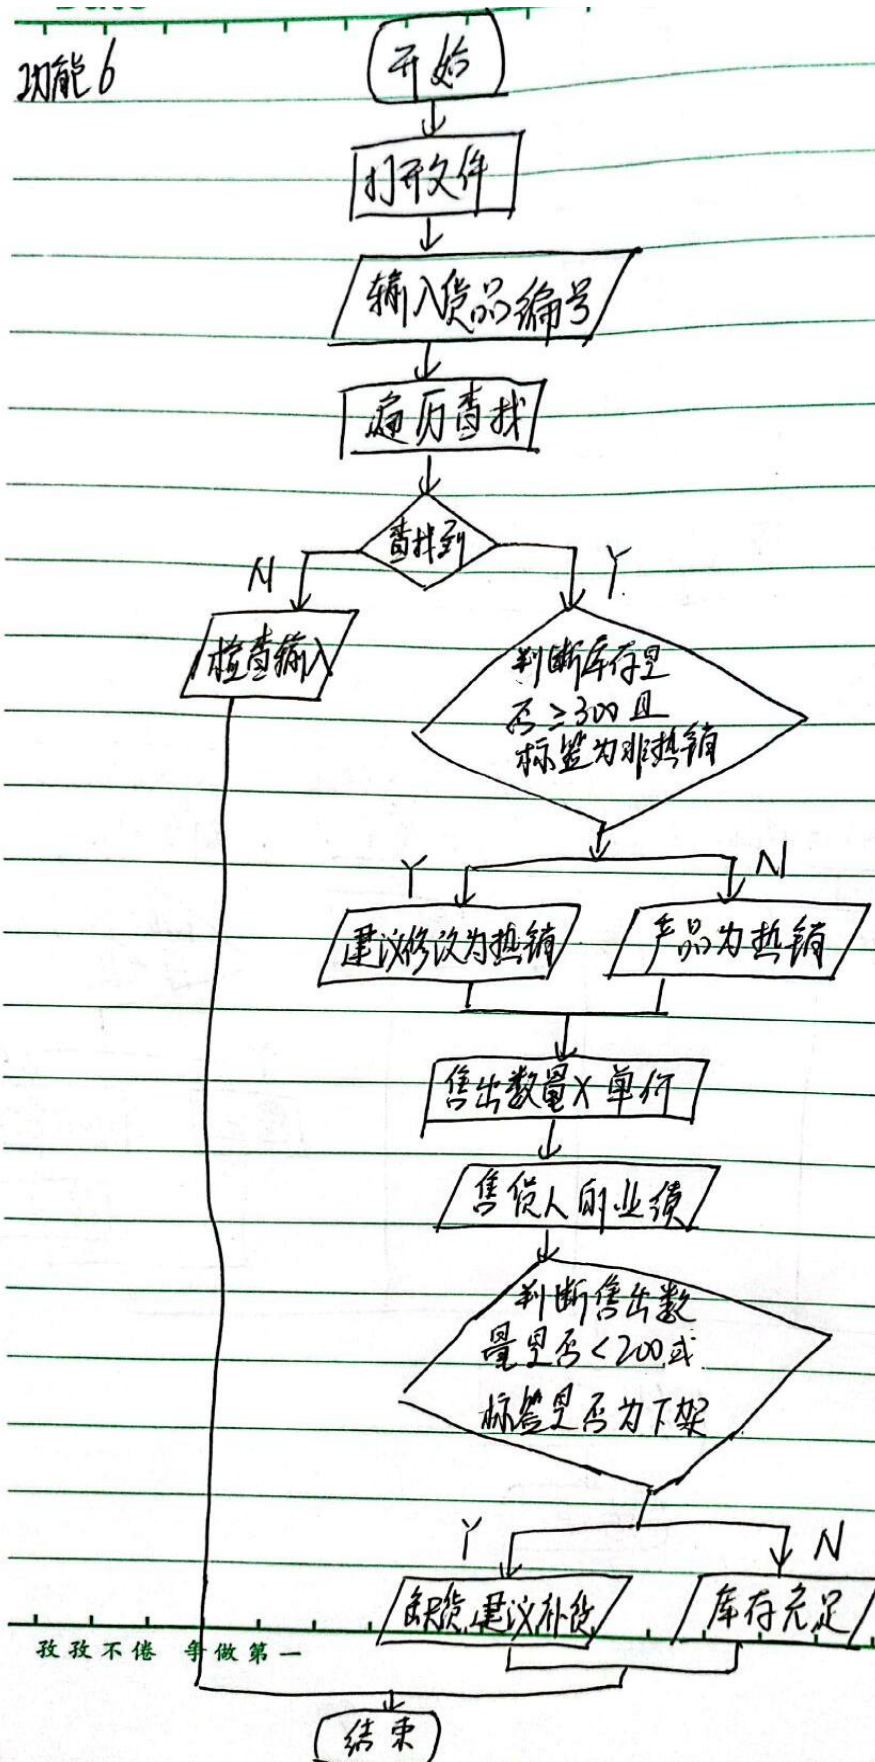 功能6
开始
打开文件
输入货品编号
遍历查找
查找到
N
Y
检查输入
判断库存是
否≥300且
标签为非热销
Y
N
建议修改为热销
产品为热销
售出数量X单价
售货人的业绩
判断售出数
量是否<200或
标签是否为下架
Y
N
缺货,建议补货
库存充足
孜孜不倦 争做第一
结束